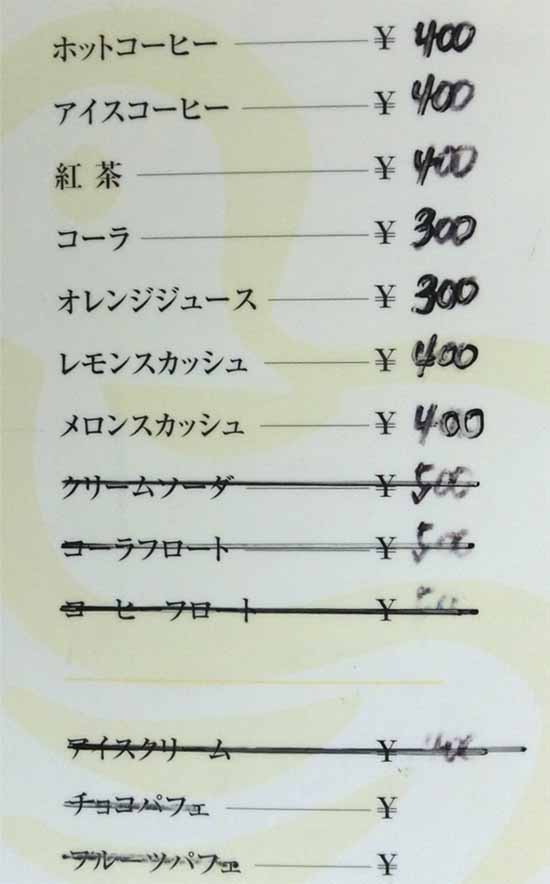 ホットコーヒー ¥ 400
アイスコーヒー ¥ 400
紅茶 ¥ 400
コーラ ¥ 300
オレンジジュース ¥ 300
レモンスカッシュ ¥ 400
メロンスカッシュ ¥ 400
クリームソーダ ¥ 500
コーラフロート ¥ 500
コーヒーフロート ¥
アイスクリーム ¥
チョコパフェ ¥
フルーツパフェ ¥